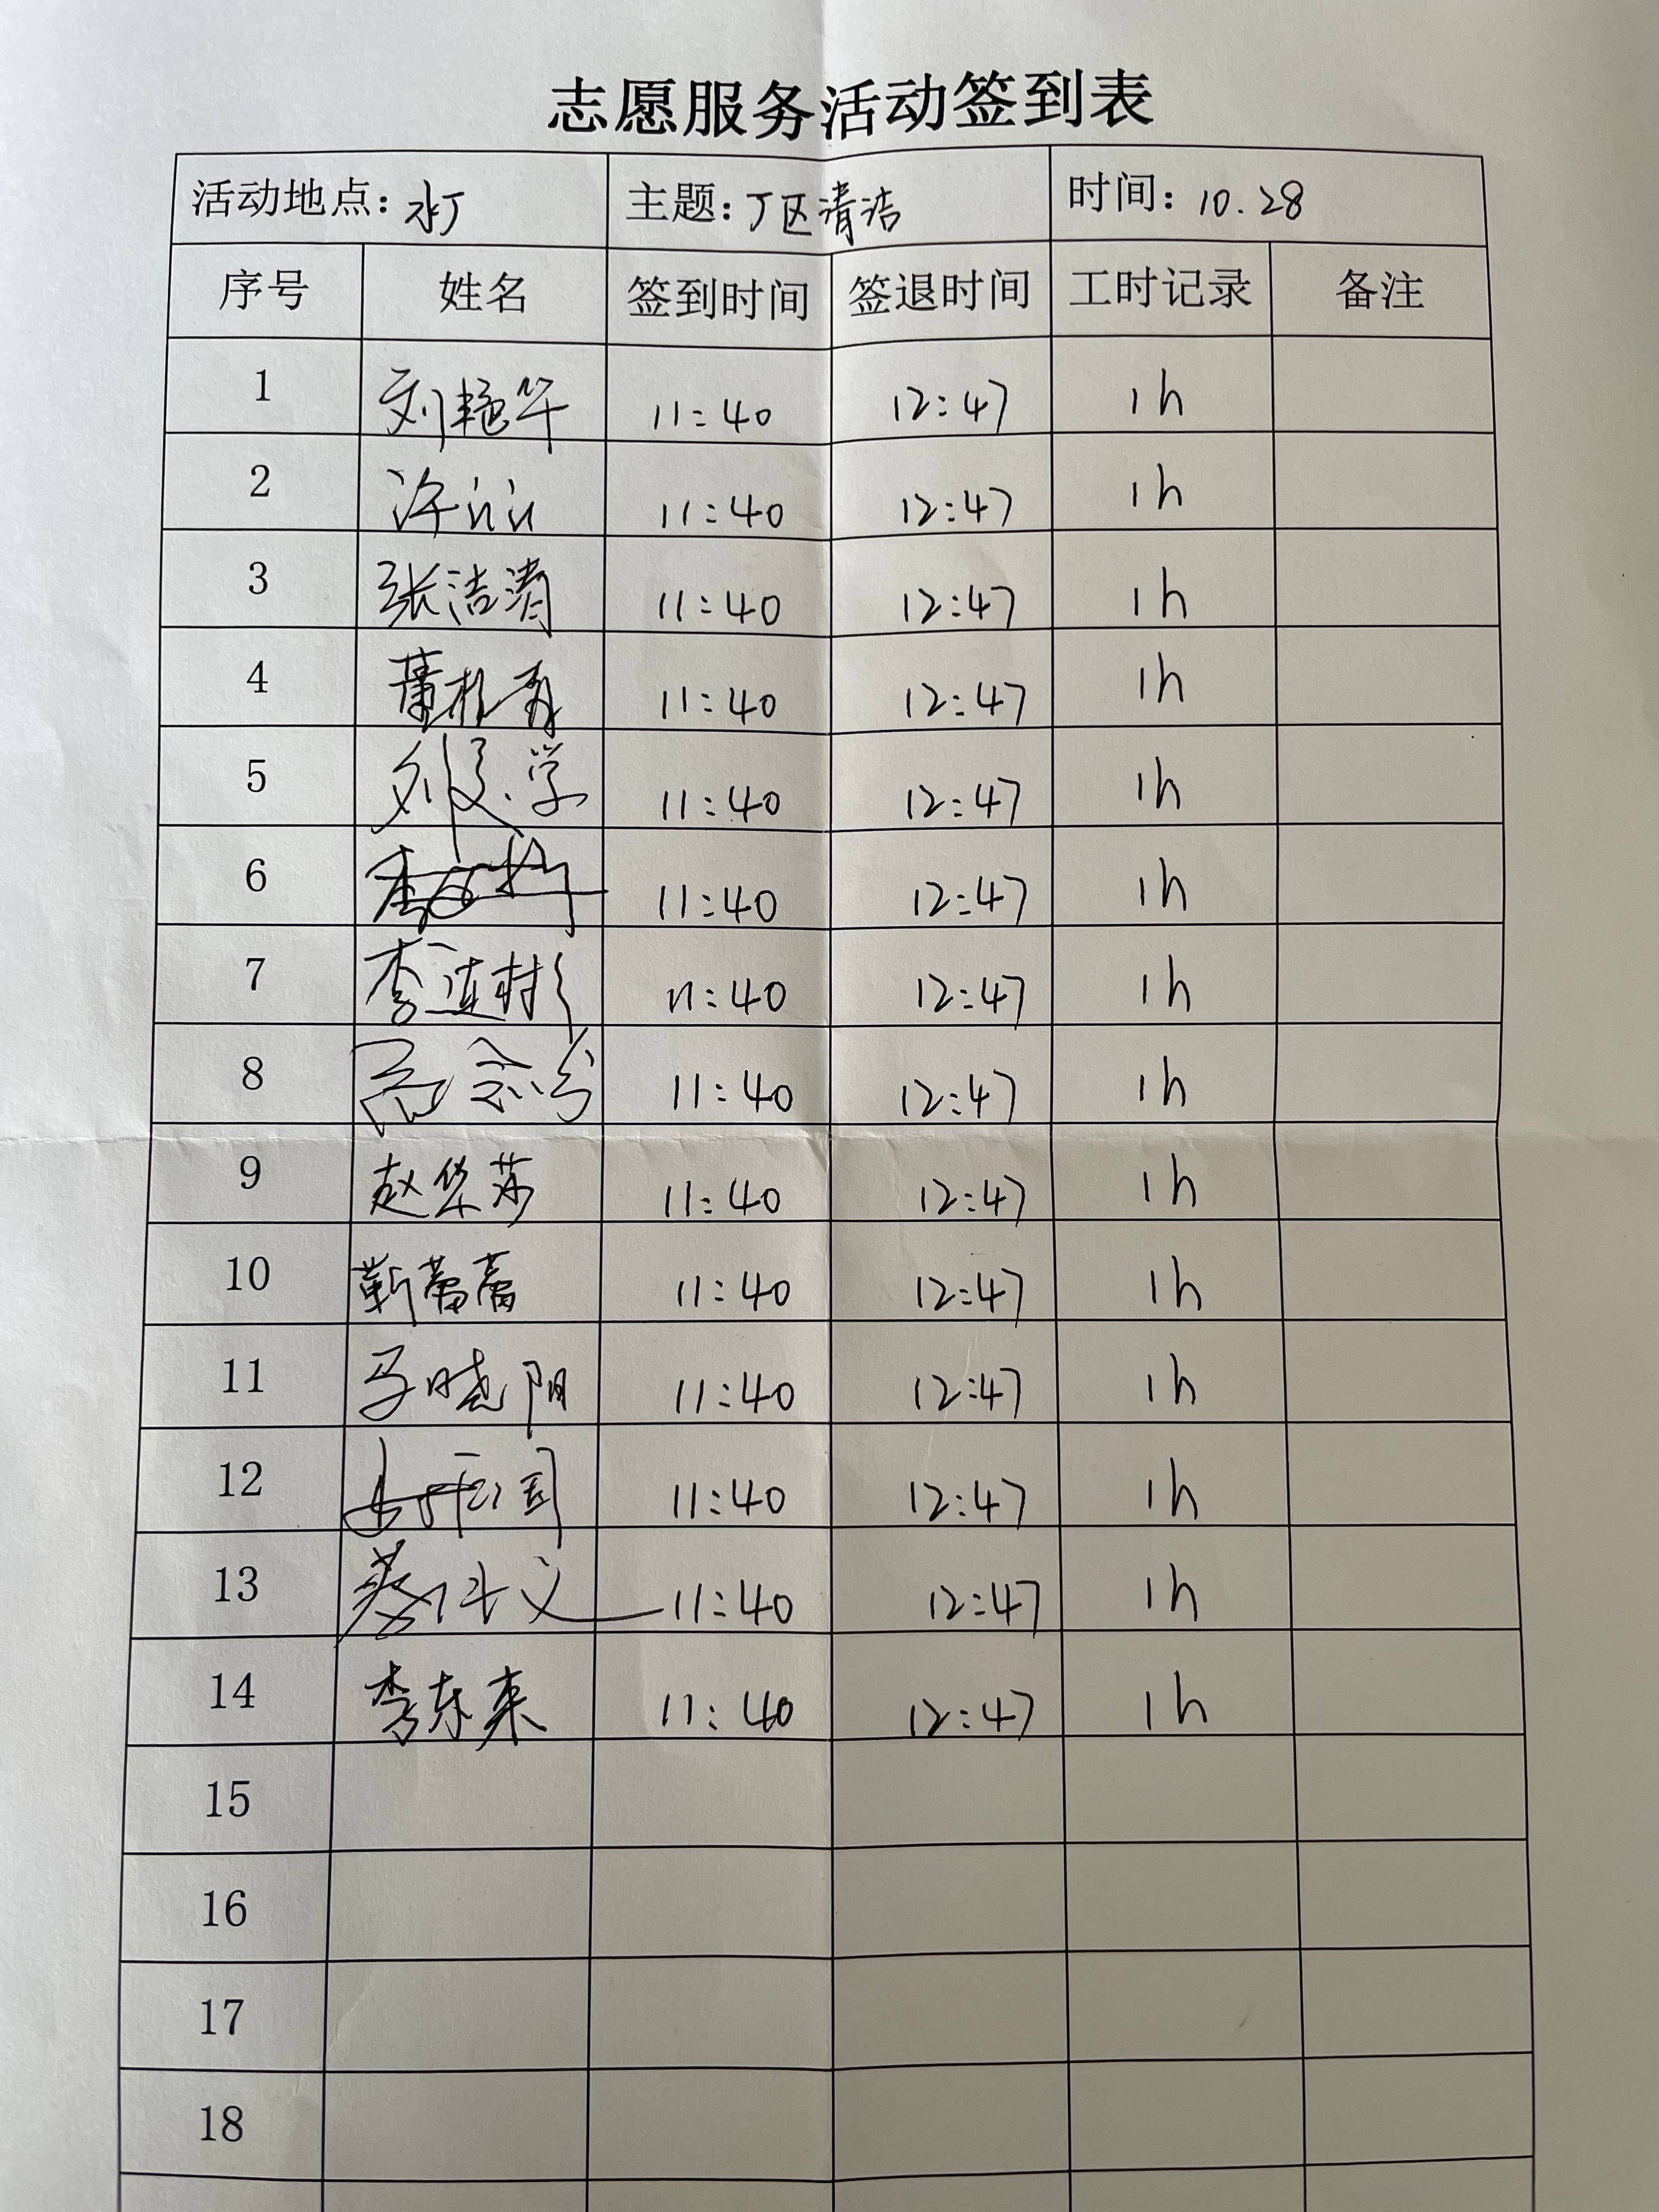 志愿服务活动签到表
活动地点: 水厂 主题: 厂区清洁 时间: 10.28
序号 姓名 签到时间 签退时间 工时记录 备注
1 刘艳华 11:40 12:47 1h
2 许 11:40 12:47 1h
3 张洁清 11:40 12:47 1h
4 11:40 12:47 1h
5 刘 学 11:40 12:47 1h
6 李 11:40 12:47 1h
7 李连彬 11:40 12:47 1h
8 11:40 12:47 1h
9 赵华莎 11:40 12:47 1h
10 靳蕾蕾 11:40 12:47 1h
11 马晓阳 11:40 12:47 1h
12 11:40 12:47 1h
13 11:40 12:47 1h
14 李东来 11:40 12:47 1h
15
16
17
18